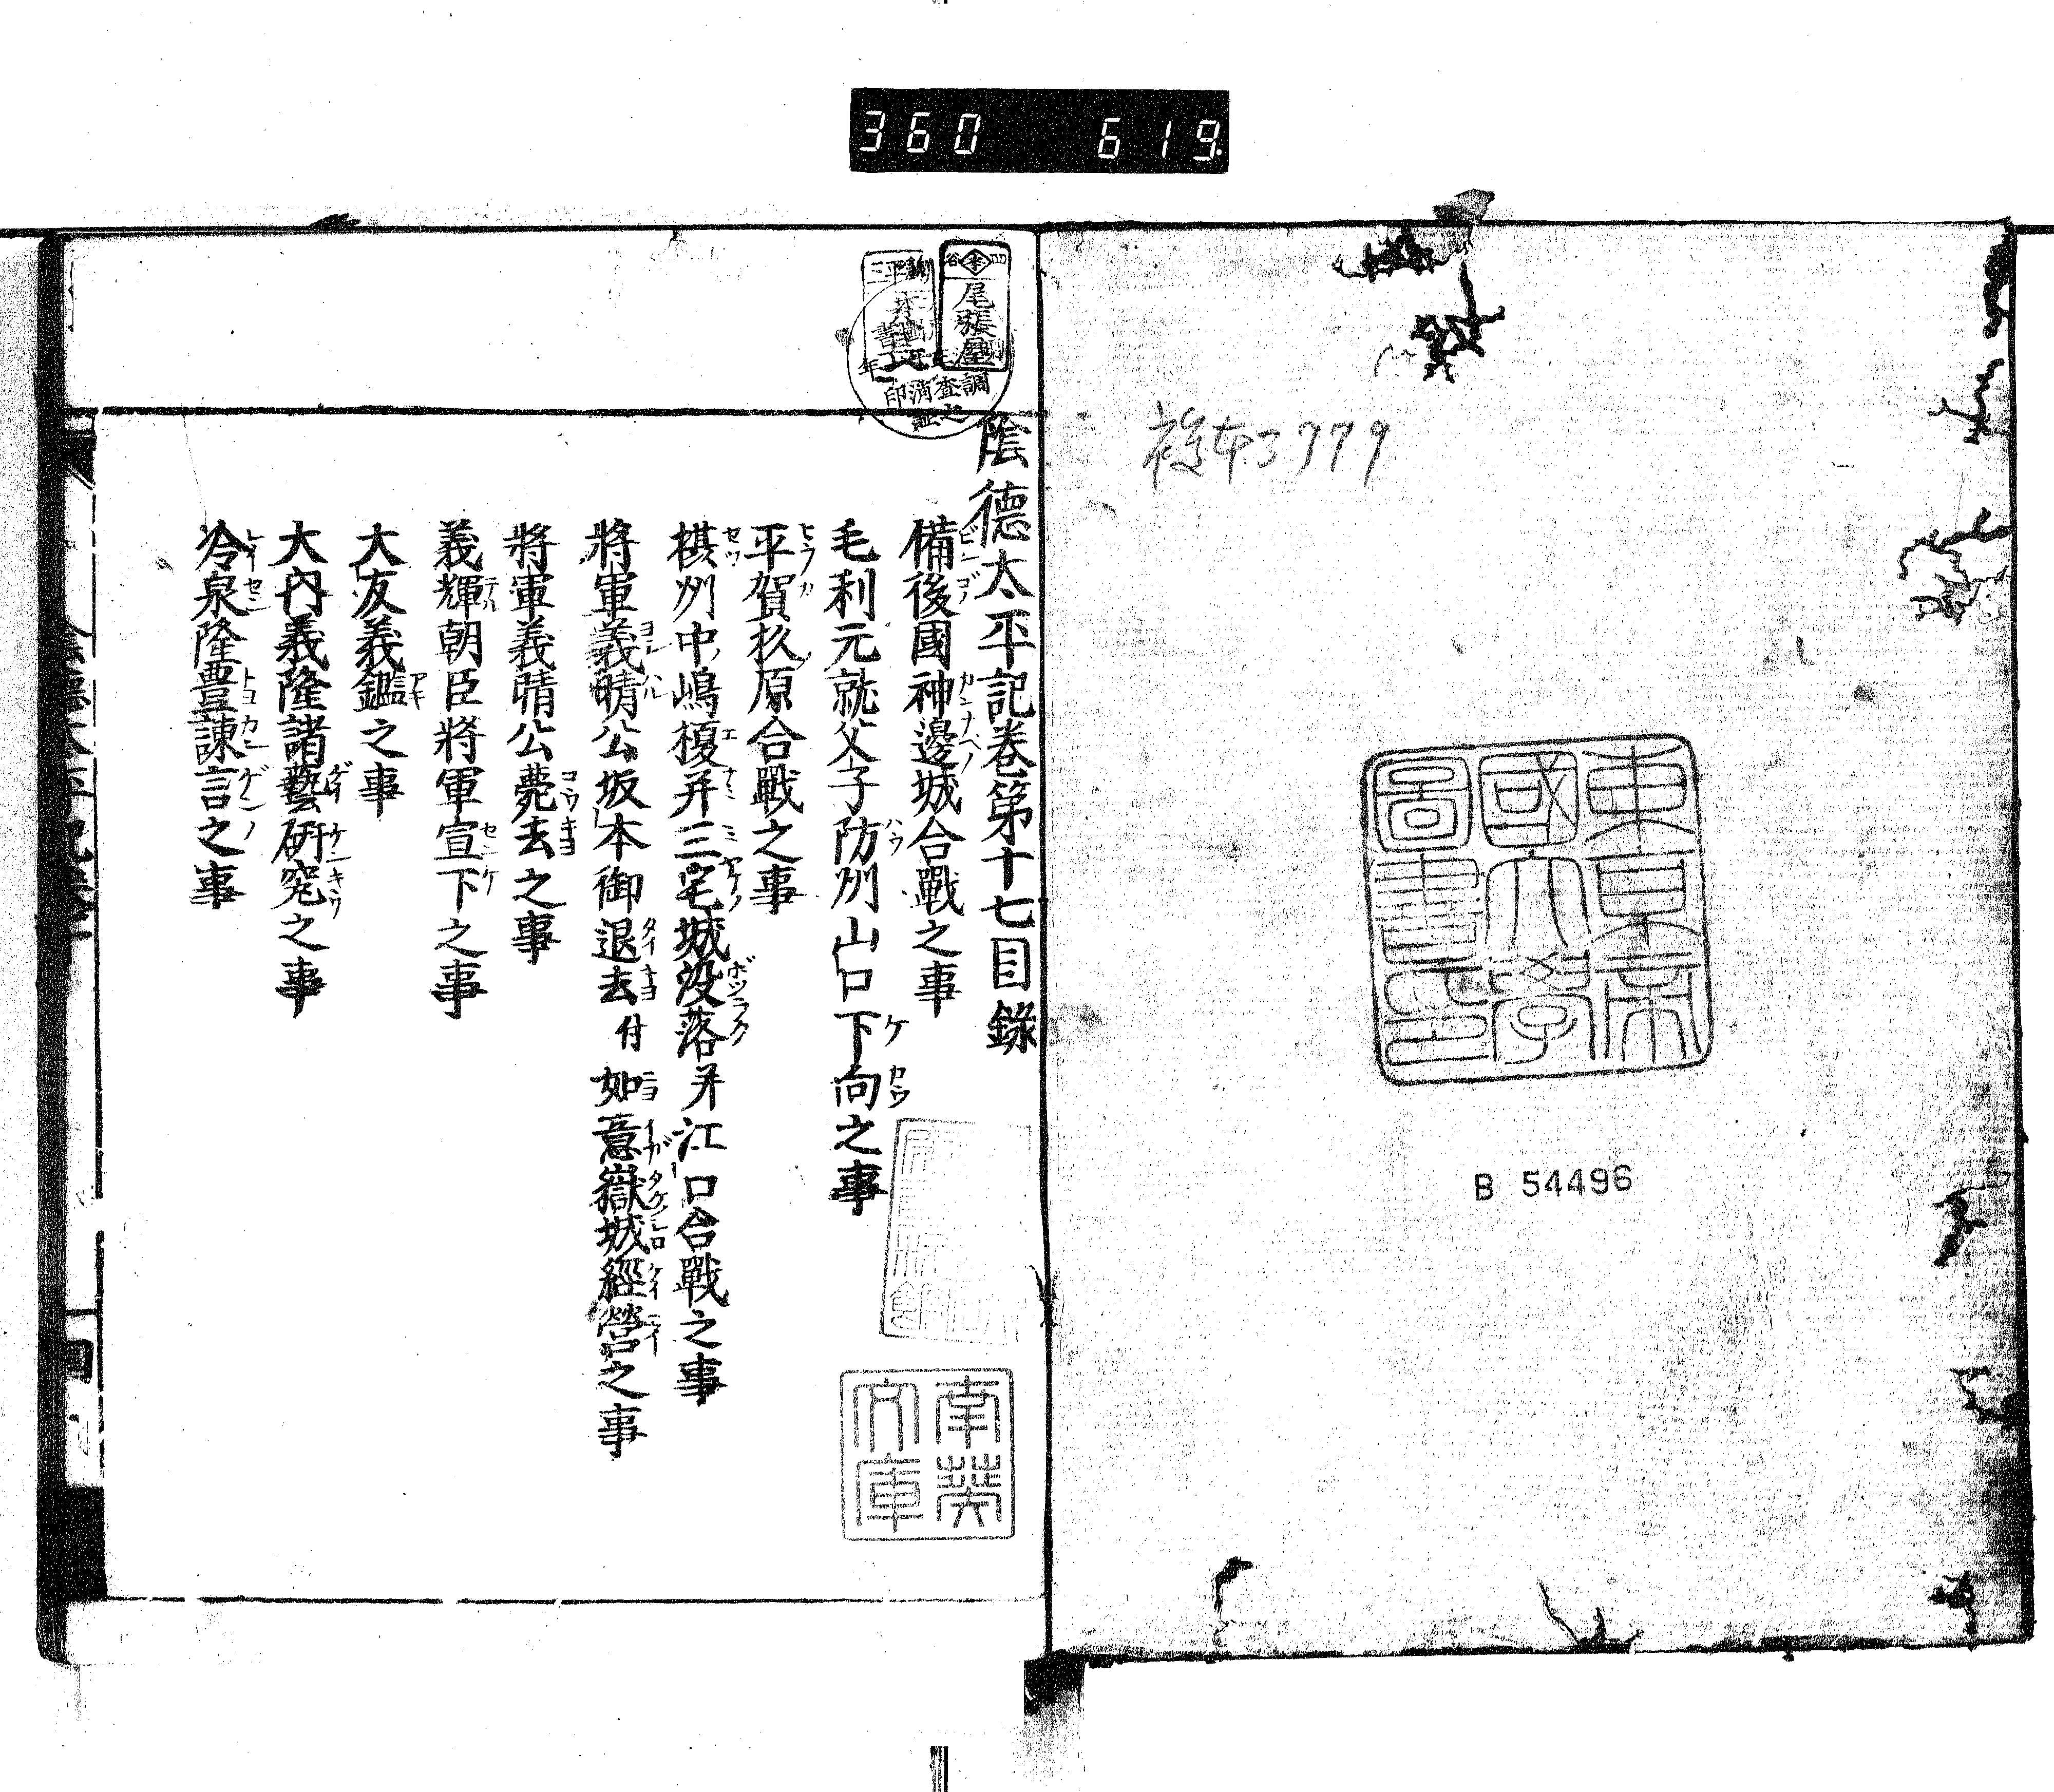 360 619.
複本3779
東京帝
國大學
圖書印
B 54496
尾張屋
調査済印
陰德太平記巻第十七目錄
備後國神邊城合戰之事
毛利元就父子防州山口下向之事
平賀杦原合戰之事
摂州中嶋榎并三宅城没落并江口合戰之事
將軍義晴公坂本御退去付如意嶽城經營之事
將軍義晴公薨去之事
義輝朝臣將軍宣下之事
大友義鑑之事
大内義隆諸藝研究之事
冷泉隆豊諌言之事
南葵
文庫